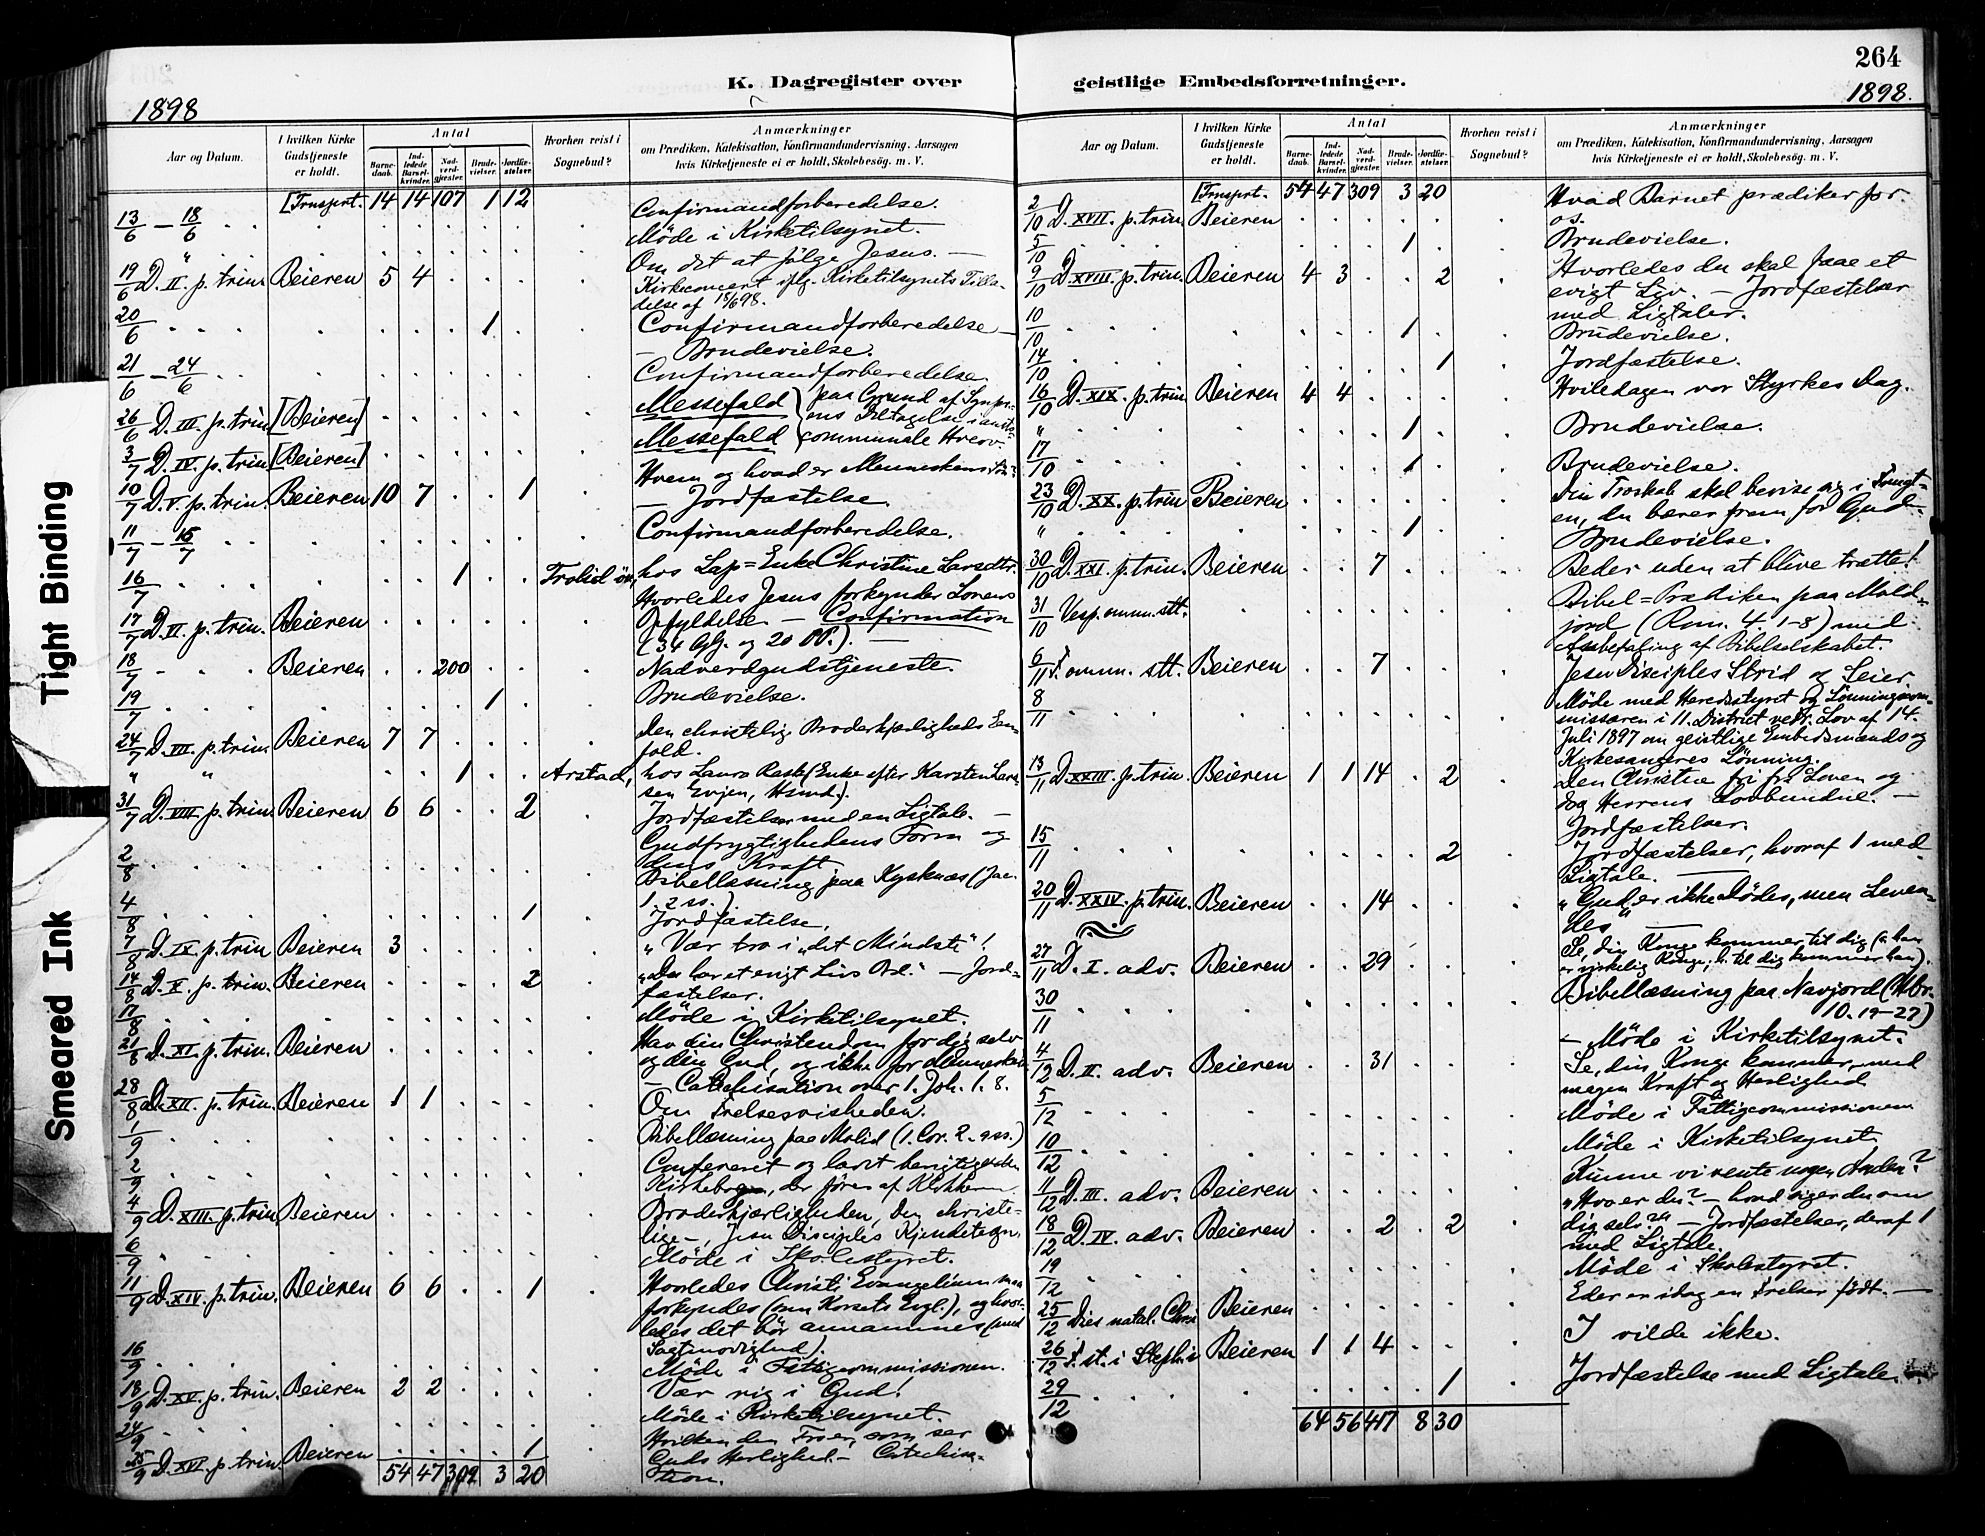 264
K. Dagregister over geistlige Embedsforretninger.
1898
1898.
Aar og Datum.
I hvilken Kirke Gudstjeneste er holdt.
Antal
Barnedaab.
Indledede Barselkvinder.
Nadverdgjæster.
Brudevielser.
Jordfæstelser.
Hvorhen reist i Sognebud?
Anmærkninger
om Prædiken, Katekisation, Konfirmandundervisning. Aarsagen
hvis Kirketjeneste ei er holdt, Skolebesøg. m. V.
[Transport. 14 14 107 1 12
13/6 – 18/6 Confirmandforberedelse.
" Möde i Kirketilsynet.
19/6 D. II. p. trin. Beieren 5 4 Om det at følge Jesus. –
Kirkeconcert iflg. Kirketilsynets Tilladelse af 18/6 98.
20/6 1 Confirmandforberedelse –
– Brudevielse.
21/6 – 24/6 Confirmandforberedelse
26/6 D. III. p. trin. [Beieren] Messefald paa Grund af
3/7 D. IV. p. trin. [Beieren] Messefald communale Hverv.
10/7 D. V. p. trin. Beieren 10 7 1 Hvem og hvad er Menneskens Søn?
– Jordfæstelse
11/7 – 15/7 Confirmandforberedelse.
16/7 1 hos Lap=Enke Christine Larsdtr.
17/7 D. VI. p. trin. Beieren Hvorledes Jesus forkynder Lovens
Opfyldelse – Confirmation
(34 Gg. og 20 PP.). –
18/7 Beieren 200 Nadverdgudstjeneste.
19/7 1 Brudevielse.
24/7 D. VII. p. trin. Beieren 7 7 Den christelige Broderkjærligheds Enfold.
" " 1 Arstad, hos Laura (Enke efter Karsten Larsen Evjen, Hsmd.).
31/7 D. VIII. p. trin. Beieren 6 6 2 Jordfæstelser med en Ligtale. –
Gudfrygtighedens Form og
dens Kraft
2/8 Bibellæsning paa (Jac.
1. 2 ss.)
4/8 1 Jordfæstelse,
7/8 D. IX p. trin Beieren 3 „Vær tro i „det Mindste"!
14/8 D. X. p. trin. Beieren 2 „Du har et evigt Livs Ord." – Jordfæstelser.
17/8 Möde i Kirketilsynet.
21/8 D. XI. p. trin. Beieren Hav din Christendom for dig selv
og din Gud, og ikke for Menneskene
– Catechisation over 1. Joh. 1. 8.
28/8 D. XII. p. trin. Beieren 1 1 Om Frelsesvisheden.
1/9 Bibellæsning paa Molid (1. Cor. 2. 9 ss.)
2/9 Confereret og
Kirkebogen, der føres af
4/9 D. XIII. p. trin. Beieren Broderkjærligheden, den christelige –, Jesu Disciples Kjendetegn.
6/9 Möde i Skolestyret.
11/9 D. XIV. p. trin. Beieren 6 6 1 Hvorledes Christi Evangelium maa
forkyndes (som Korsets Evgl.), og hvorledes det bør annammes (med
Sagtmodighed).
16/9 Möde i Fattigcommissionen.
18/9 D. XV. p. trin. Beieren 2 2 Vær rig i Gud!
24/9 Möde i Kirketilsynet.
25/9 D. XVI. p. trin. Beieren 1 Hvilken den Tro er, som ser
Guds Herlighed. – Catechisation.
54 47 309 3 20
Aar og Datum.
I hvilken Kirke Gudstjeneste er holdt.
Antal
Barnedaab.
Indledede Barselkvinder.
Nadverdgjæster.
Brudevielser.
Jordfæstelser.
Hvorhen reist i Sognebud?
Anmærkninger
om Prædiken, Katekisation, Konfirmandundervisning. Aarsagen
hvis Kirketjeneste ei er holdt, Skolebesøg. m. V.
[Transport. 54 47 309 3 20
2/10 D. XVII. p. trin. Beieren Hvad Barnet prædiker for
os.
5/10 1 Brudevielse.
9/10 D. XVIII. p. trin. Beieren 4 3 2 Hvorledes du skal faae et
evigt Liv. – Jordfæstelser
med Ligtaler.
10/10 1 Brudevielse.
14/10 1 Jordfæstelse.
16/10 D. XIX. p. trin. Beieren 4 4 Hviledagen vor Styrkes Dag.
" 1 Brudevielse.
17/10 1 Brudevielse.
23/10 D. XX. p. trin Beieren Din Troskab skal bevise sig i Frugten, du bærer frem for Gud –
" 1 Brudevielse.
30/10 D. XXI. p. trin. Beieren 7 Beder uden at blive trætte!
31/10 Vesp. omm. stt. Bibel=Prædiken paa Moldjord (Rom. 4. 1-8) med
Anbefaling af Bibelselskabet.
6/11 F. omm. stt. Beieren 7 Jesu Disciples Strid og Seier
8/11 Möde med Heredsstyret og Lønningscommissæren i 11. District vedr. Lov af 14.
Juli 1897 om geistlige Embedsmænds og
Kirkesangeres Lønning.
13/11 D. XXIII. p. trin. Beieren 1 1 14 2 Den Christne fri fra Loven og
dog Herrens Lovbundne. –
Jordfæstelser.
15/11 2 Jordfæstelser, hvoraf 1 med
Ligtale. –
20/11 D. XXIV. p. trin. Beieren 14 „Gud er ikke Dødes, men Levendes"
27/11 D. I. adv. Beieren 29 Se, din Konge kommer til dig (a. han
er virkelig Konge; b. til dig kommer han).
30/11 Bibellæsning paa Navjord (Hebr.
10. 19-27)
– Möde i Kirketilsynet.
4/12 D. II. adv. Beieren 31 Se, din Konge kommer med
megen Kraft og Herlighed
5/12 Möde i Fattigcommissionen
10/12 Möde i Kirketilsynet
11/12 D. III. adv. Beieren Kunne vi vente nogen Anden?
18/12 D. IV. adv. Beieren 2 2 „Hvo er du? – hvad siger du om
dig selv?" – Jordfæstelser, deraf 1
med Ligtale.
19/12 Möde i Skolestyret.
25/12 Dies natal. Chri Beieren Eder er idag en Frelser født. –
26/12 F. st. i Steph. i Beieren 1 1 4 I vilde ikke.
29/12 1 Jordfæstelse med Ligtale.
64 56 417 8 30
Tight Binding
Smeared Ink